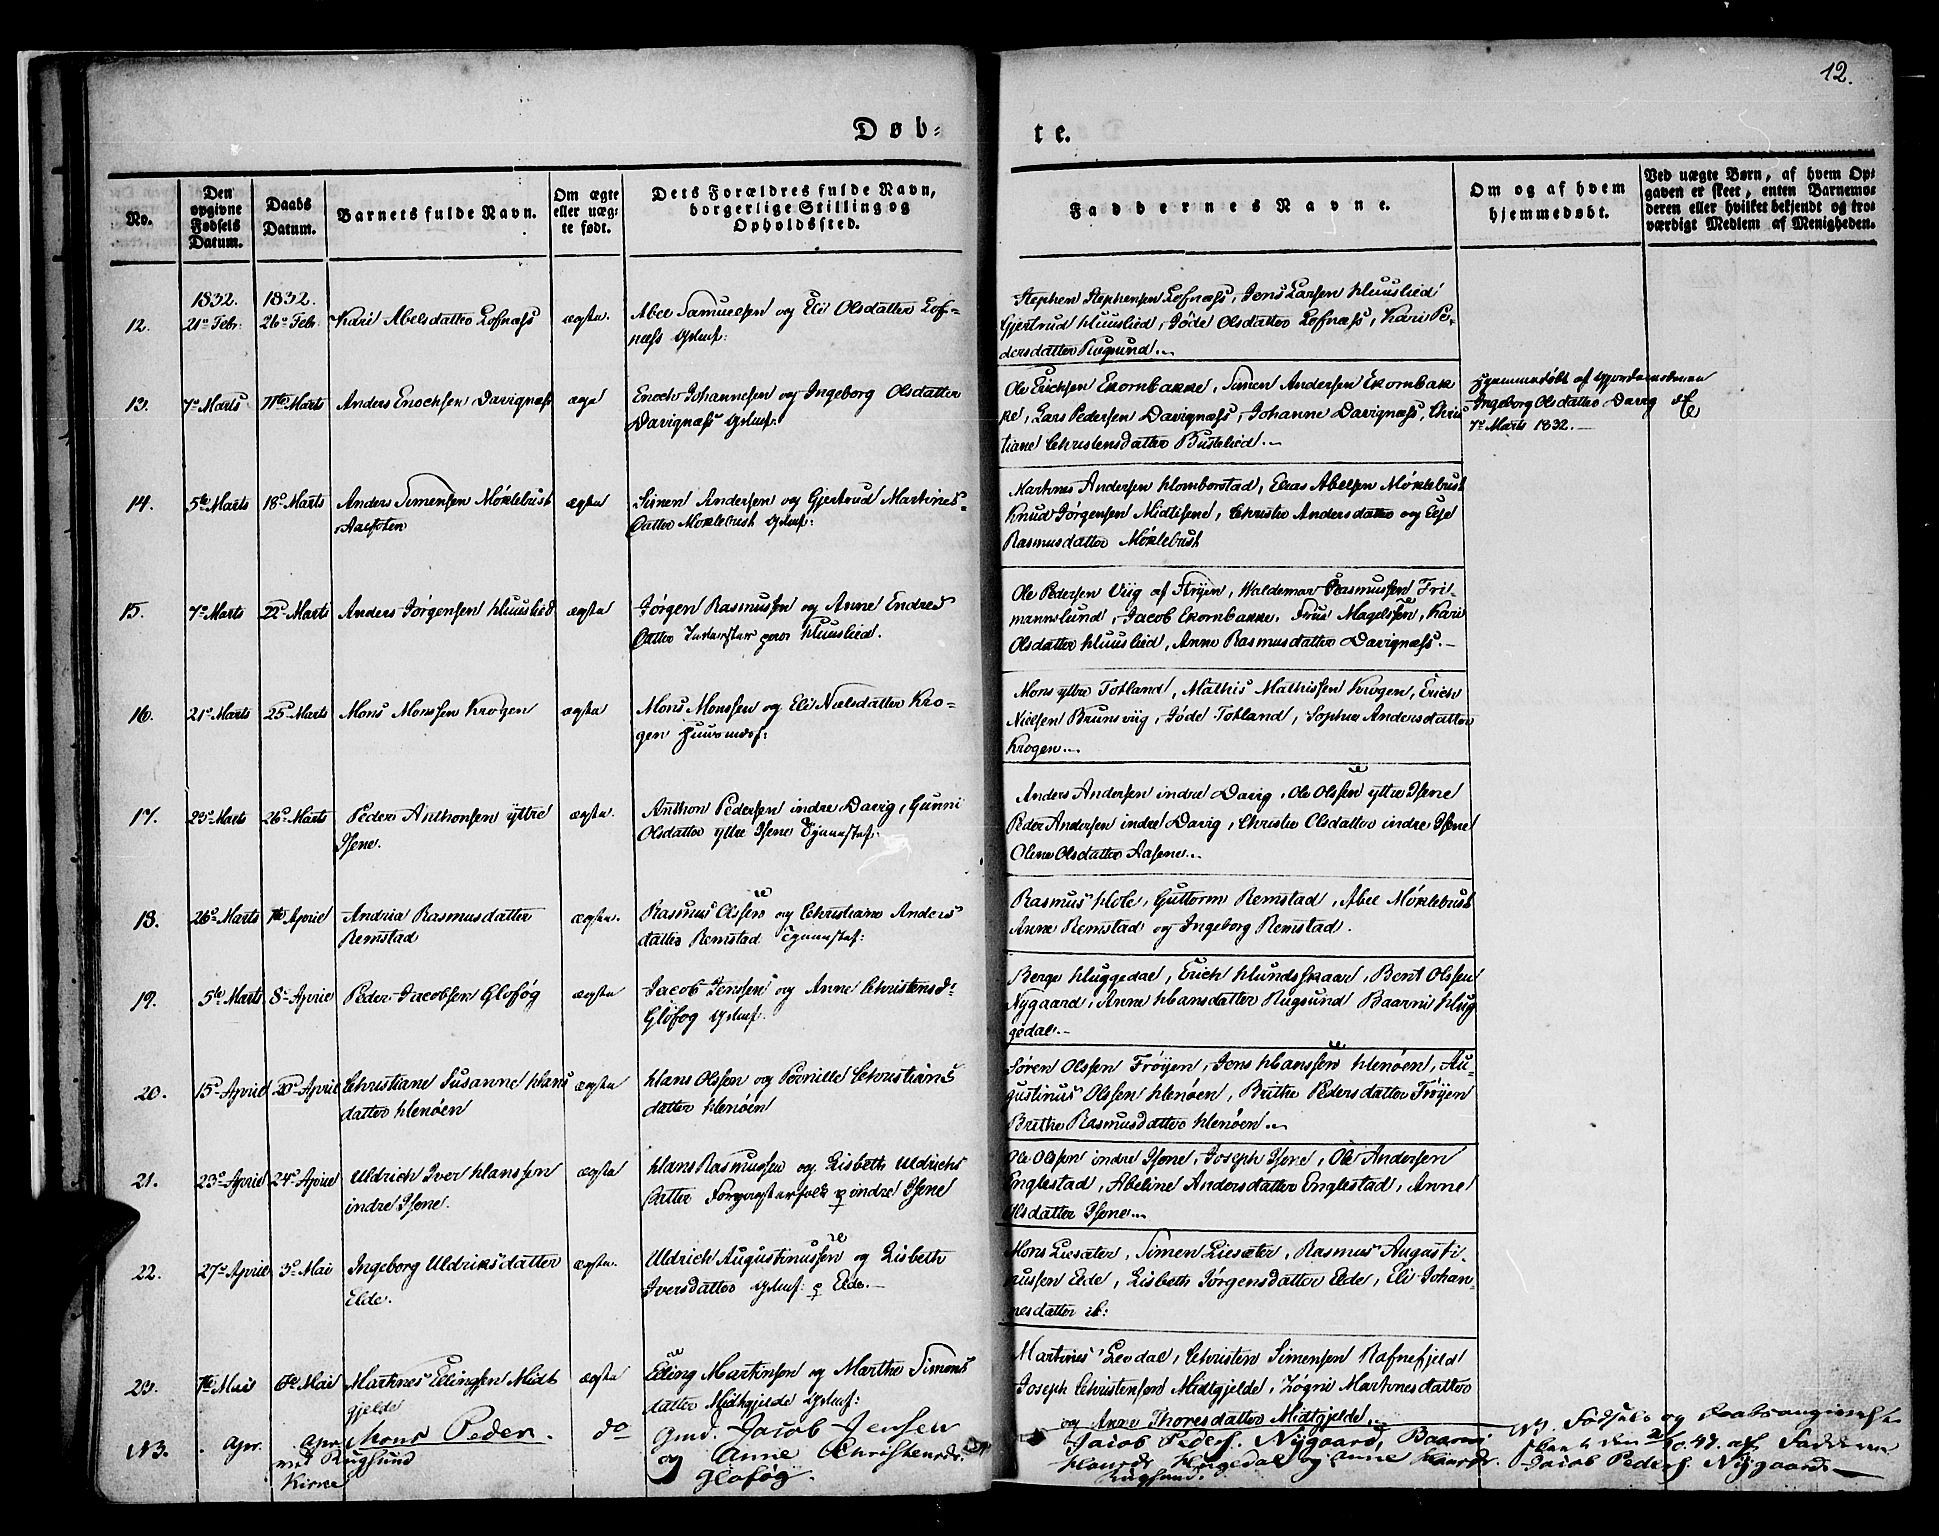 12.
Døb-
te.
No.
Den opgivne Fødsels Datum.
Daabs Datum.
Barnets fulde Navn.
Om ægte eller uægte født.
Dets Forældres fulde Navn, borgerlige Stilling og Opholdssted.
Faddernes Navne.
Om og af hvem hjemmedøbt.
Ved uægte Børn, af hvem Opgaven er skeet, enten Barnemoderen eller hvilket bekjendt og troværdigt Medlem af Menigheden.
1832. 1832.
12. 21de Febr. 26de Febr. Kari Abelsdatter Lofnæss ægte.
Abel Samuelsen og Eli Olsdatter Lofnæss
Stephen Stephensen Lofnæss, Jens Larsen Huuslied
Gjertrud Huuslied, Jøde Olsdatter Lofnæss, Kari Pe-
dersdatter Rugsund.
13. 7de Marts 11te Marts Anders Enochsen Davignæss ægte
Enoch Johannesen og Ingeborg Olsdatter
Davignæss
Ole Erichsen Ekornbakke, Simen Andersen Ekornbak
ke, Lars Pedersen Davignæss, Johanne Davignæss, Chris
tiane Christensdatter Bustelied.
Hjemmedøbt af Gjordemoderen
Ingeborg Olsdatter Davig
7de Marts 1832.
14. 5te Marts 18de Marts Anders Simensen Møklebust
Aalfoten
ægte
Simen Andersen og Gjertrud Martines
Datter Møklebust
Martines Andersen Homborstad, Elias Abelsen Møklebust
Knud Jørgensen Midtisene, Christie Andersdatter og Else
Rasmusdatter Møklebust
15. 7de Marts 22de Marts Anders Jørgensen Huuslied ægte
Jørgen Rasmussen og Anne Endres
Datter Huuslied.
Ole Pedersen Viig af Stryen, Waldemar Rasmussen Fri-
mannslund, Jacob Ekornbakke, Frue Magelssen, Kari
Olsdatter Huuslied, Anne Rasmusdatter Davignæss.
16. 21de Marts 25de Marts Mons Monssen Krogen ægte
Mons Monssen og Eli Nielsdatter Kro-
gen Huusmdsf:
Mons yttre Totland, Mathis Mathissen Krogen, Erich
Nielsen Brunsviig, Jøde Totland, Sophie Andersdatter
Krogen
17. 23de Marts 26de Marts Peder Anthonsen yttre
Isene.
ægte.
Anthon Pedersen indre Davig, Gunni
Olsdatter yttre Isene
Anders Andersen indre Davig, Ole Olssen yttre Isene
Peder Andersen indre Davig, Christie Olsdatter indre Isene
Oline Olsdatter Aasene
18. 26de Marts 1ste April Andria Rasmusdatter
Remstad
ægte.
Rasmus Olssen og Christiane Anders
datter Remstad
Rasmus Hole, Guttorm Remstad, Abel Møklebust
Anne Remstad og Ingeborg Remstad.
19. 5te Marts 8de April Peder Jacobsen Gloføg ægte
Jacob Jenssen og Anne Christensd:
Gloføg
Berge Huggedal, Erich Hundskaar, Bent Olssen
Nygaard, Anne Hansdatter Rugsund Baarni Hug
gedal.
20. 15de April 20de April Christiane Susanne Hans
datter Henøen
ægte
Hans Olssen og Pernille Christians
datter Henøen
Søren Olssen Frøyen, Jens Hanssen Henøen, Au-
gustinus Olssen Henøen, Brithe Pedersdatter Frøyen
Brithe Rasmusdatter Henøen
21. 23de April 24de April Uldrich Iver Hanssen
indre Isene.
ægte
Hans Rasmussen og Lisbeth Uldrichs
datter indre Isene
Ole Olssen indre Isene, Joseph Isene, Ole Andersen
Englestad, Abeline Andersdatter Englestad, Anne
Olsdatter Isene
22. 27de April 3de Mai Ingeborg Uldriksdatter
Elde.
ægte.
Uldrich Augustinussen og Lisbeth
Iversdatter Elde.
Mons Liesæter, Simen Liesæter, Rasmus Augusti-
nussen Elde, Lisbeth Jørgensdatter Elde, Eli Johan-
nesdatter
23. 1ste Mai 6te Mai Martines Ellingsen Midt
gjelde
ægte
Elling Martinsen og Marthe Simens
datter Midtgjelde
Martines Levdal, Christen Simensen Rafnefjeld
Joseph Christensen Midtgjelde, Martinesdatter
og Anne Thoresdatter Midtgjelde.
N3. Apr. Apr.
ved Rugsund
Kirke
Mons Peder. do
Gmd. Jacob Jensen
og Anne Christensdr.
Gloføg.
Jacob Peders. Nygaard, Baarni
Hugedal og Anne
Rugsund.
NB. Fødsels og Daabsangivelse
af Fadderen
Jacob Peders. Nygaard.